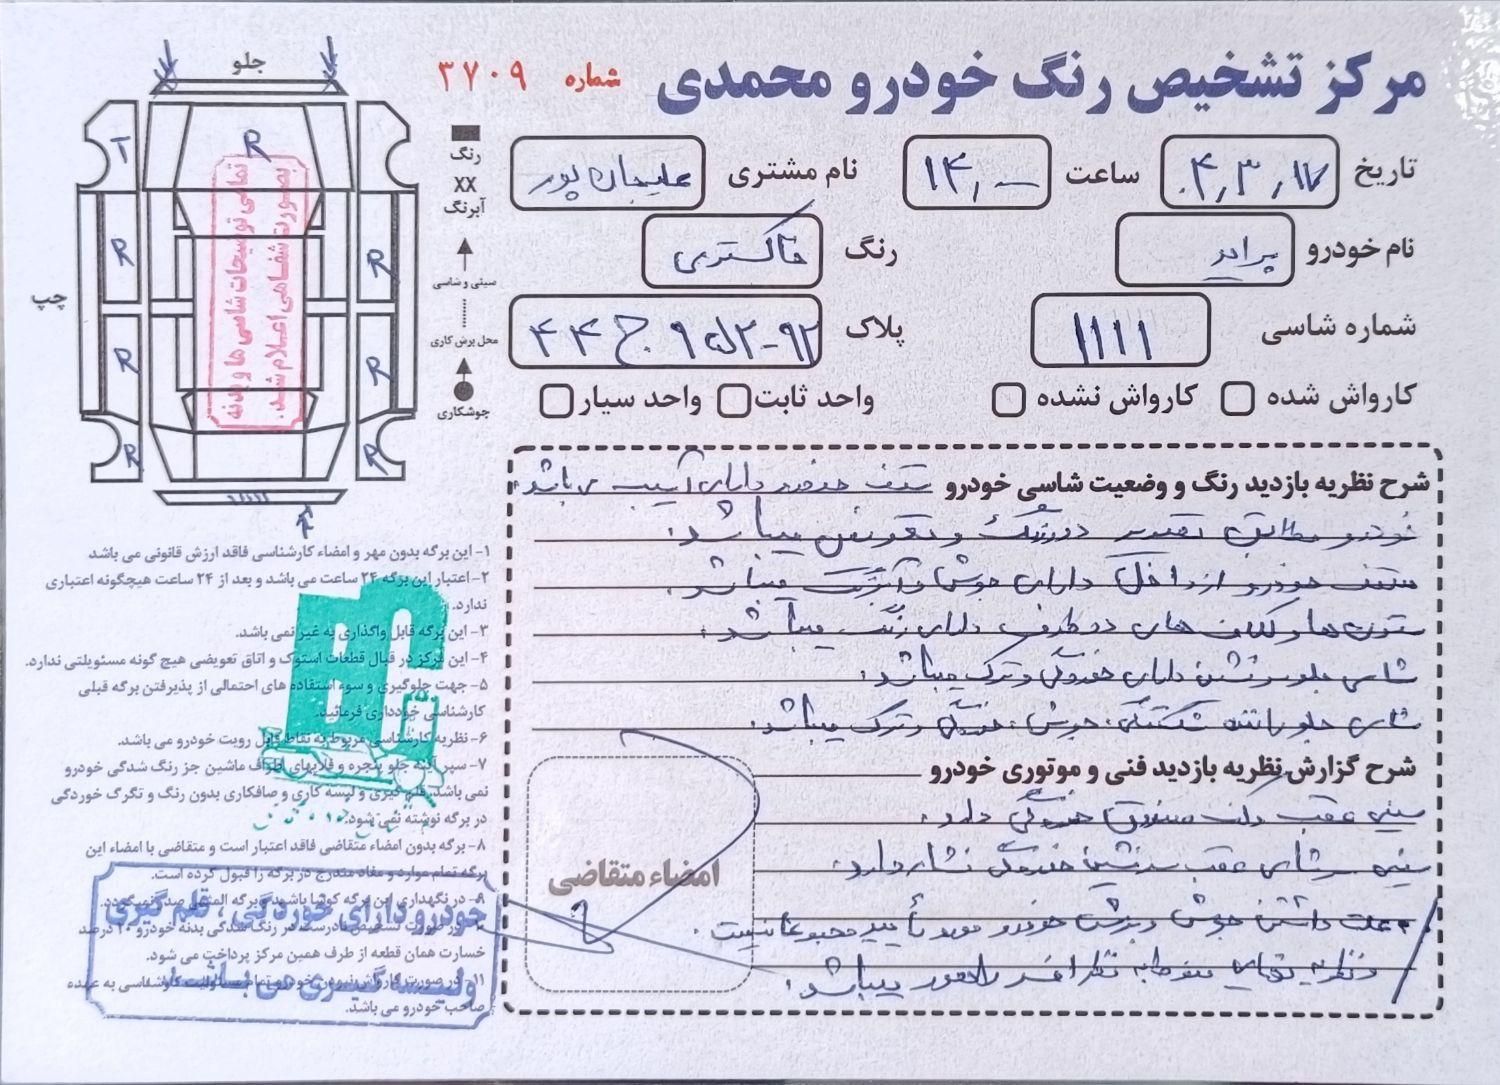 مرکز تشخیص رنگ خودرو محمدی
شماره ۳۷۰۹
تاریخ ۰۴٫۳٫۱۷
ساعت ۱۴٫۰۰
نام مشتری علیجان پور
نام خودرو پراید
رنگ خاکستری
شماره شاسی ۱۱۱۱
پلاک ۴۴ ج ۹۵۲-۹۲
کارواش شده
کارواش نشده
واحد ثابت
واحد سیار
جلو
چپ
T
R
R
R
R
R
R
R
تمامی توضیحات شاسی ها و بدنه
بصورت شفاهی اعلام شد.
رنگ
XX
آبرنگ
سینی و شاسی
محل برش کاری
جوشکاری
شرح نظریه بازدید رنگ و وضعیت شاسی خودرو سقف خودرو دارای آسیب می باشد.
خودرو مطابق تصویر دور رنگ و تعویض میباشد.
سقف خودرو از داخل دارای جوش و آبرنگ میباشد.
ستون ها و کلاف های دو طرف دارای رنگ میباشد.
شاسی جلو سرنشین دارای خوردگی و ترک میباشد.
شاسی جلو راننده شکستگی، جوش، خوردگی و ترک میباشد.
شرح گزارش نظریه بازدید فنی و موتوری خودرو
سینی عقب کف صندوق خوردگی دارد.
سینی سرشاسی عقب سرنشین خوردگی نشار دارد.
به علت داشتن جوش و برش خودرو مورد تأیید مجموعه نیست.
و نظریه نهایی منوط به نظر افسر راهور میباشد.
امضاء متقاضی
۱- این برگه بدون مهر و امضاء کارشناسی فاقد ارزش قانونی می باشد
۲- اعتبار این برگه ۲۴ ساعت می باشد و بعد از ۲۴ ساعت هیچگونه اعتباری
ندارد.
۳- این برگه قابل واگذاری به غیر نمی باشد.
۴- این مرکز در قبال قطعات استوک و اتاق تعویضی هیچ گونه مسئولیتی ندارد.
۵- جهت جلوگیری و سوء استفاده های احتمالی از پذیرفتن برگه قبلی
کارشناسی خودداری فرمائید.
۶- نظریه کارشناسی مربوط به نقاط قابل رویت خودرو می باشد.
۷- سپر آینه جلو پنجره و قلابهای اطراف ماشین جز رنگ شدگی خودرو
نمی باشد. قلم گیری و لیسه کاری و صافکاری بدون رنگ و تگرگ خوردگی
در برگه نوشته نمی شود.
۸- برگه بدون امضاء متقاضی فاقد اعتبار است و متقاضی با امضاء این
برگه تمام موارد و مفاد مندرج در برگه را قبول کرده است.
۹- در نگهداری این برگه کوشا باشید برگه المثنی صادر نمیگردد.
در صورت تشخیص نادرست در رنگ شدگی بدنه خودرو ۲۰ درصد
خسارت همان قطعه از طرف همین مرکز پرداخت می شود.
۱۱- در صورت کارواش نبودن خودرو تمام مسئولیت کارشناسی به عهده
صاحب خودرو می باشد.
خودرو دارای خوردگی، قلم گیری
و لیسه گیری می باشد